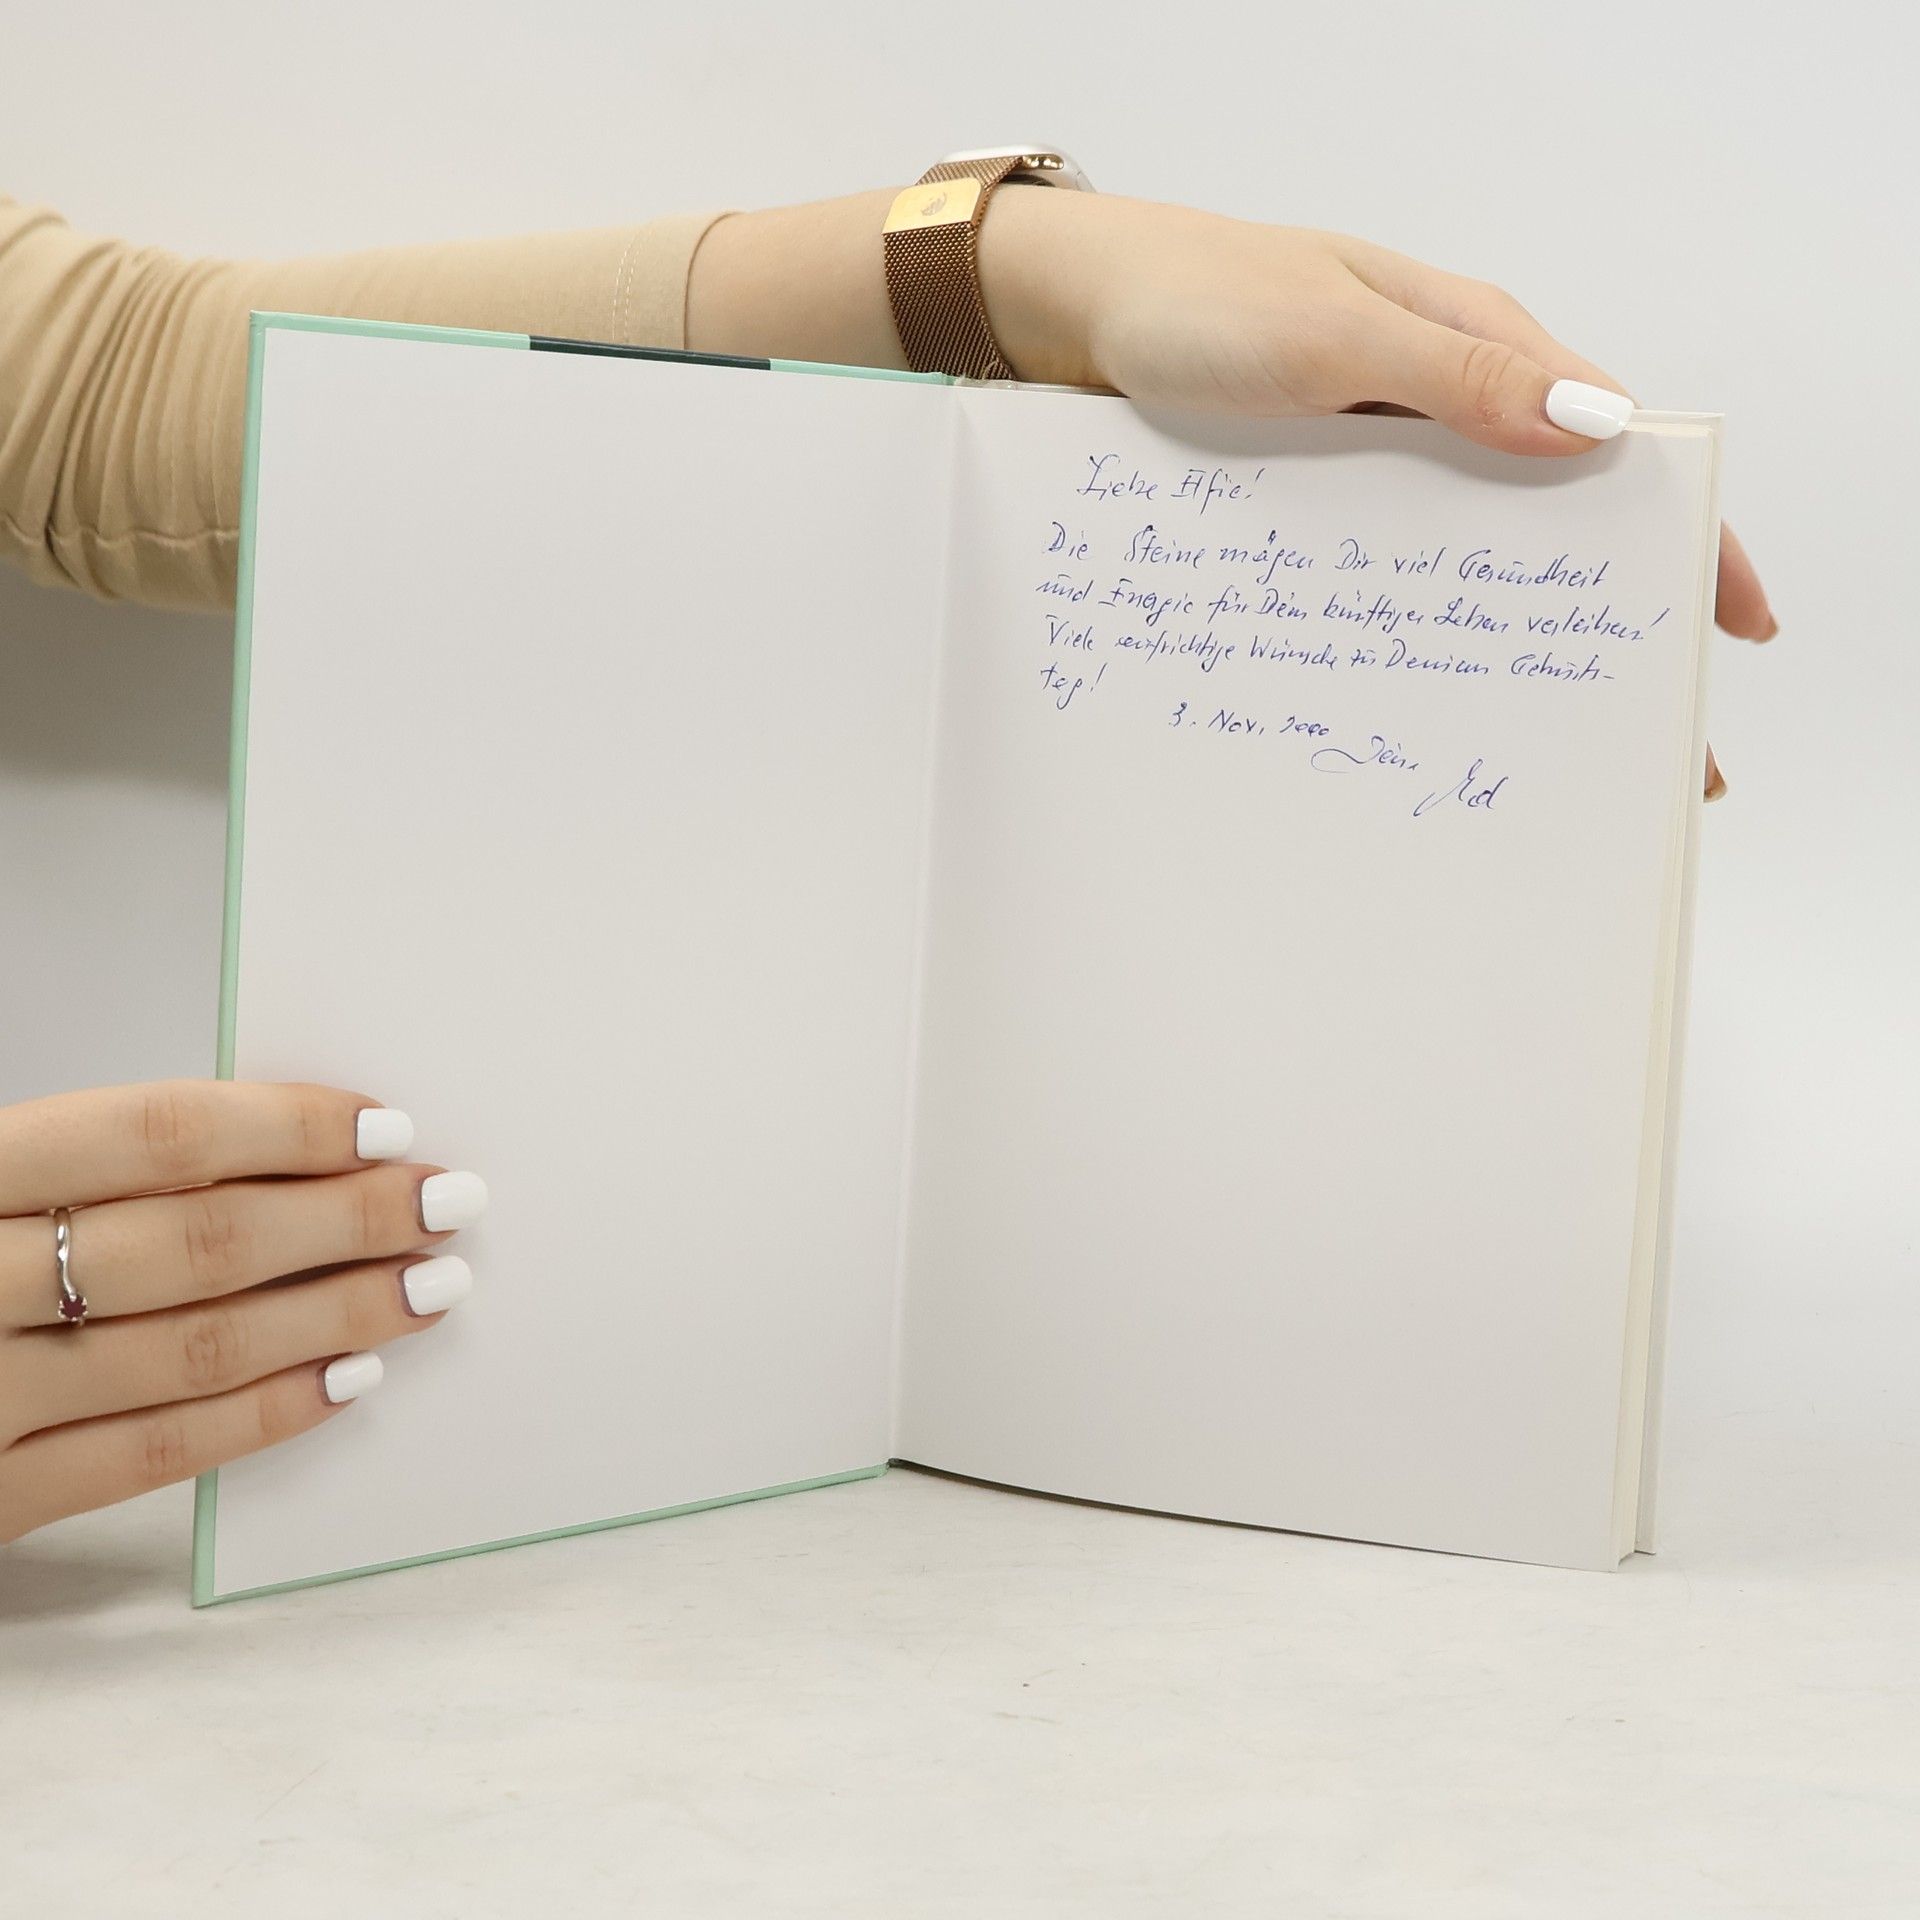 Liebe Elfie!
Die Steine mögen Dir viel Gesundheit
und Energie für Dein künftiges Leben verleihen!
Viele aufrichtige Wünsche zu Deinem Geburts-
tag!
3. Nov. 2000